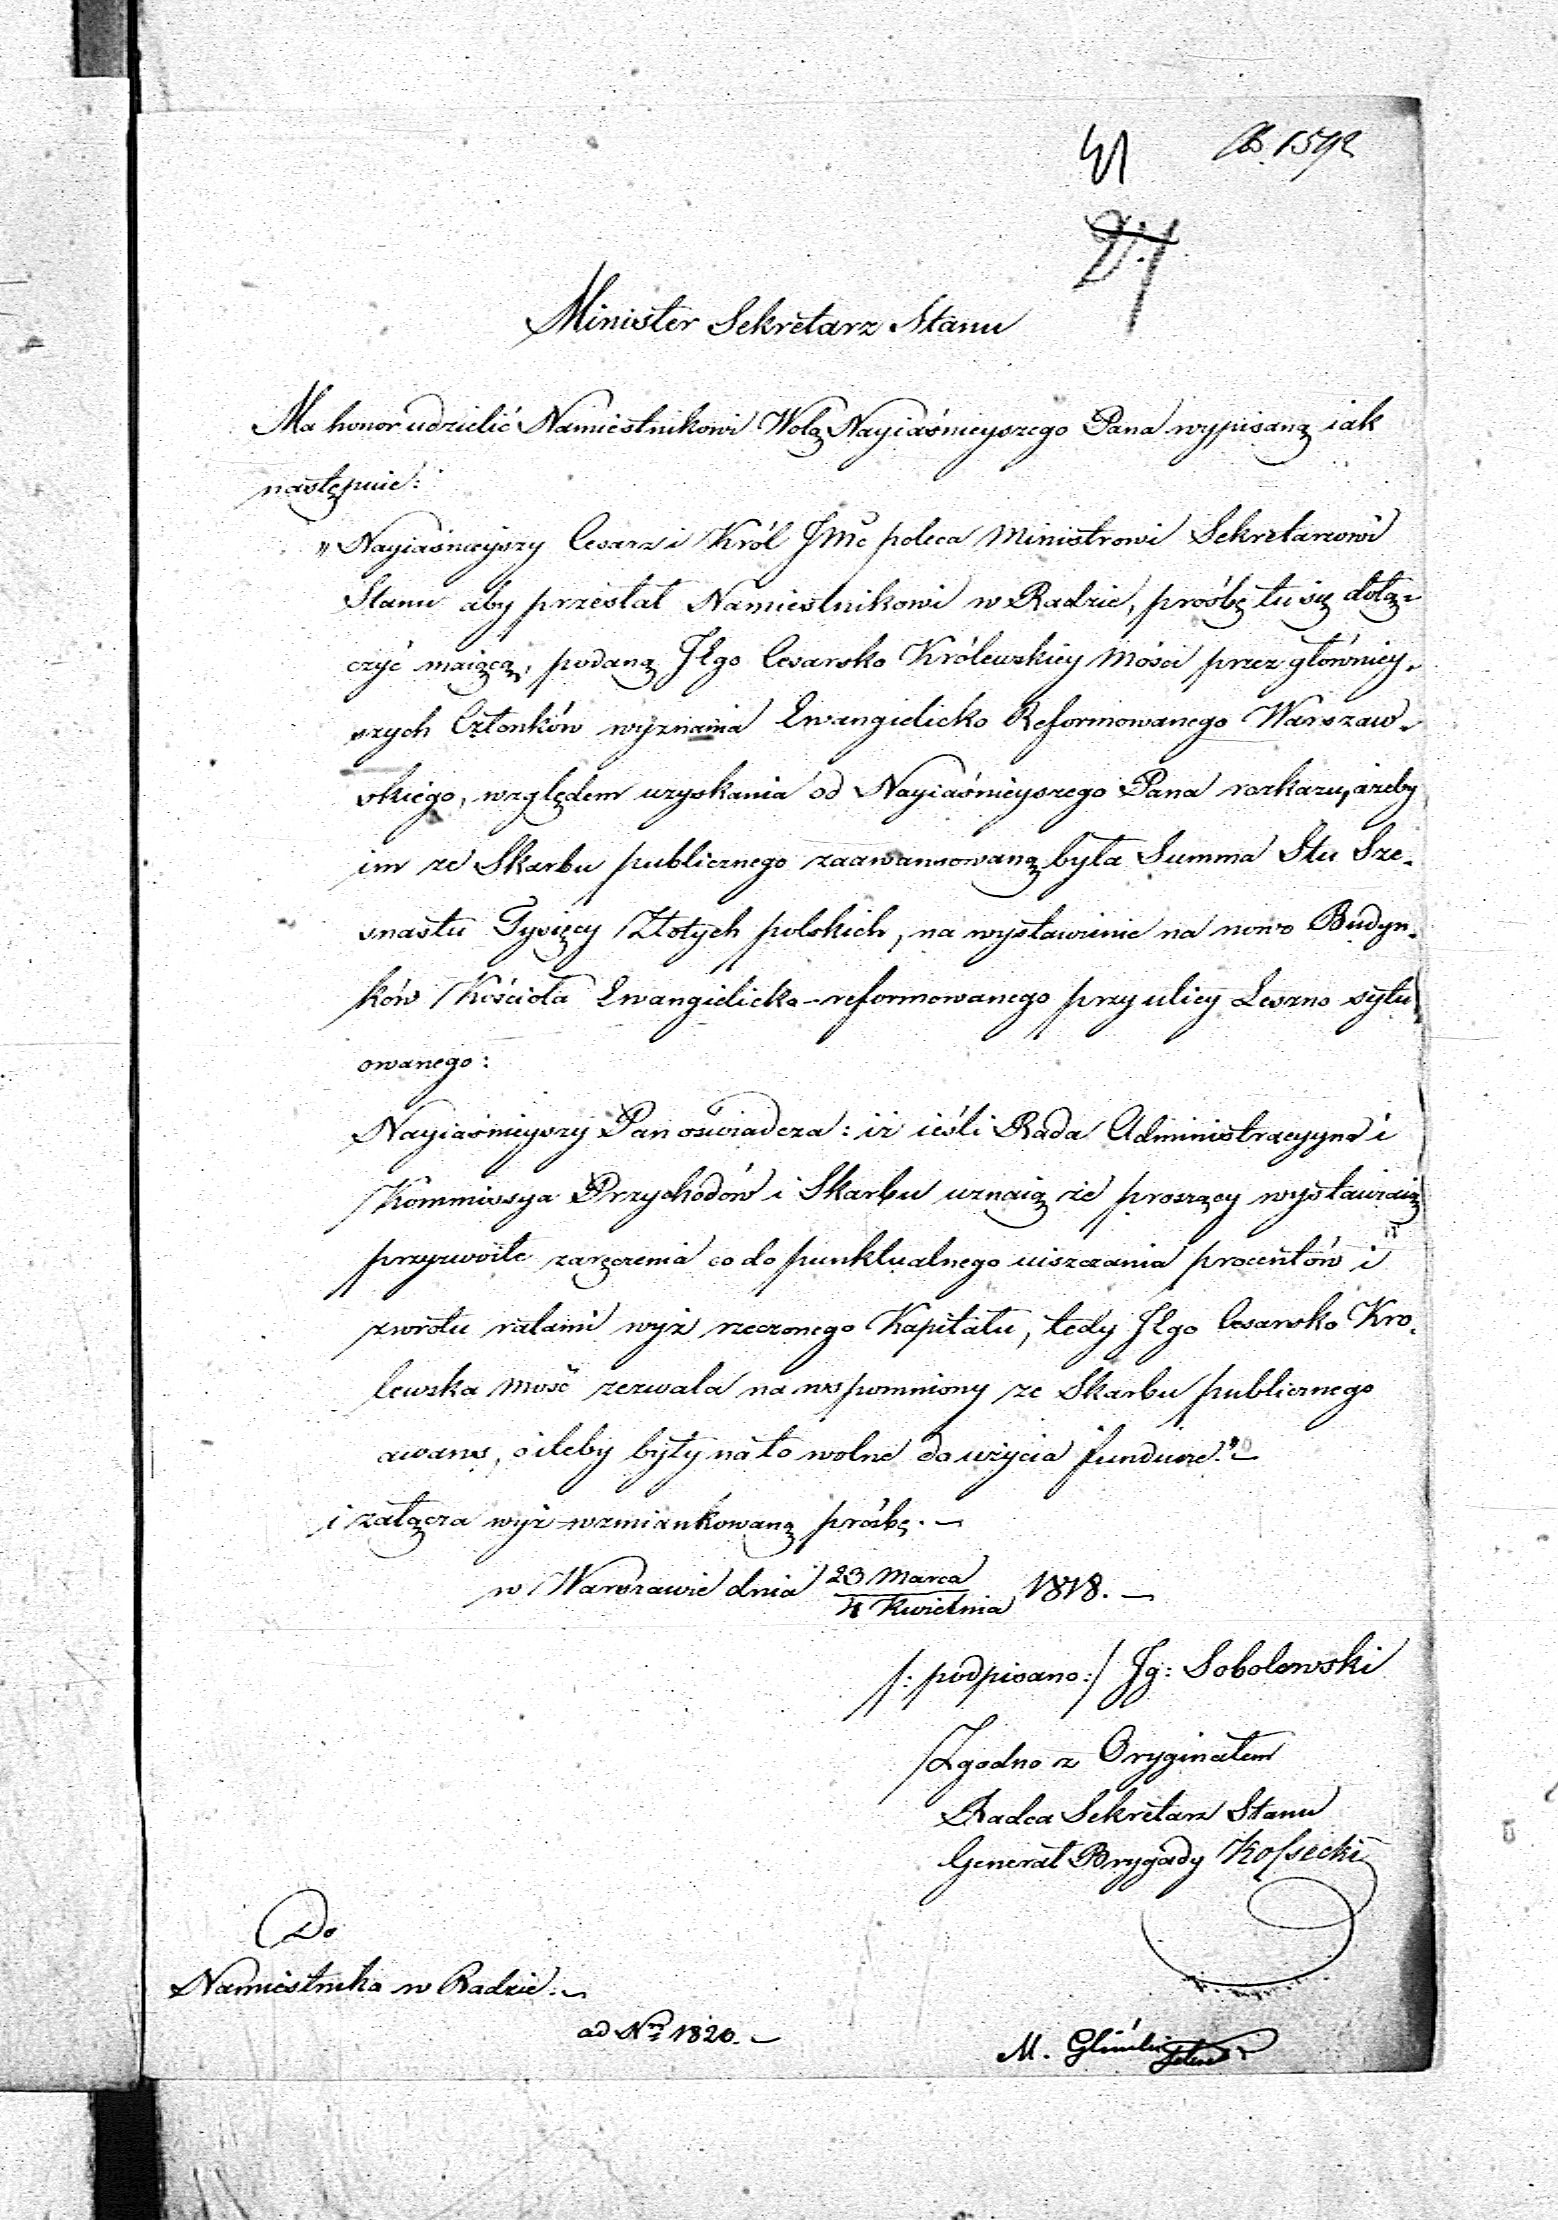 41
1592
Minister Sekretarz Stanu
Ma honor udzielić Namiestnikowi Wolą Nayiaśnieyszego Pana wypisaną iak
następuie:
„Nayiaśnieyszy Cesarz i Król Jmć poleca Ministrowi Sekretarzowi
Stanu aby przesłał Namiestnikowi w Radzie, prośbę tu się dołą-
czyć maiącą, podaną JEgo Cesarsko Królewskiey Mości przez główniey-
szych Członków wyznania Ewangielicko Reformowanego Warszaw-
skiego, względem uzyskania od Nayiaśnieyszego Pana rozkazu, ażeby
im ze Skarbu publicznego zaawansowaną była Summa Stu Sze-
snastu Tysięcy Złotych polskich, na wystawienie na nowo Budyn-
ków Kościoła Ewangielicko-reformowanego przy ulicy Leszno sytu
owanego:
Nayiaśnieyszy Pan oświadcza: iż ieśli Rada Administracyyna i
Kommissya Przychodów i Skarbu uznaią że proszący wystawiaią
przyzwoite zaręczenia co do punktualnego uiszczania procentów i
zwrotu ratami wyż rzeczonego Kapitału, tedy JEgo Cesarsko Kro-
lewska Mość zezwala na wspomniony ze Skarbu publicznego
awans, oileby były na to wolne do użycia fundusze."–
i załącza wyż wzmiankowaną prośbę.–
w Warszawie dnia 23 Marca / 4 Kwietnia 1818.–
/: podpisano:/ Jg: Sobolewski
Zgodno z Oryginałem
Radca Sekretarz Stanu
Generał Brygady Kossecki
Do
Namiestnika w Radzie.–
ad Nrm 1820.–
M.